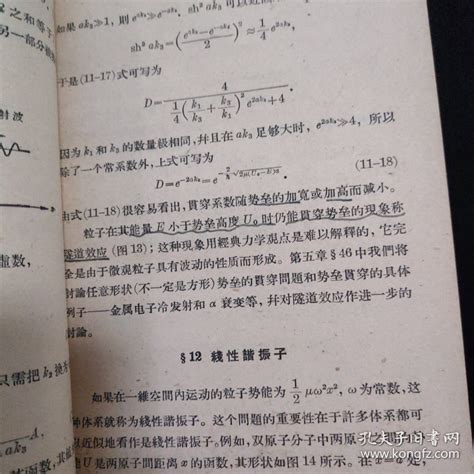 之和等于
另一部分
如果 ak₃≫1，则 e^{ak₃}≫e^{-ak₃}，
sh² ak₃=(\frac{e^{ak₃}-e^{-ak₃}}{2})²≈\frac{1}{4}e^{2ak₃}.
于是(11-17)式可写为
D=\frac{4}{\frac{1}{4}(\frac{k₁}{k₃}+\frac{k₃}{k₁})²e^{2ak₃}+4}.
因为 k₁ 和 k₃ 的数量级相同，并且在 ak₃ 足够大时，e^{2ak₃}≫4，所以
除了一个常系数外，上式可写为
D=e^{-2ak₃}=e^{-\frac{2}{ħ}\sqrt{2μ(U₀-E)}a}. (11-18)
由式(11-18)很容易看出，贯穿系数随势垒的加宽或加高而减小。
粒子在其能量 E 小于势垒高度 U₀ 时仍能贯穿势垒的现象称
隧道效应(图 13)；这种现象用经典力学观点是难以解释的，它完
全是由于微观粒子具有波动的性质而形成。第五章 §46 中我們将
討論任意形状(不一定是方形)势垒的貫穿問題和势垒貫穿的具体
例子——金属电子冷发射和 α 衰变等，并对隧道效应作进一步的
討論。
§12 綫性諧振子
如果在一維空間內运动的粒子势能为 \frac{1}{2}μω²x²，ω 为常数，这
种体系就称为綫性諧振子。这个問題的重要性在于許多体系都可
以近似地看作是綫性諧振子。例如，双原子分子中两原子
是两原子間距离 x 的函数，其形状如图 14 所示。在
射波
虚数，
只需把 k₃ 换为
孔夫子旧书网